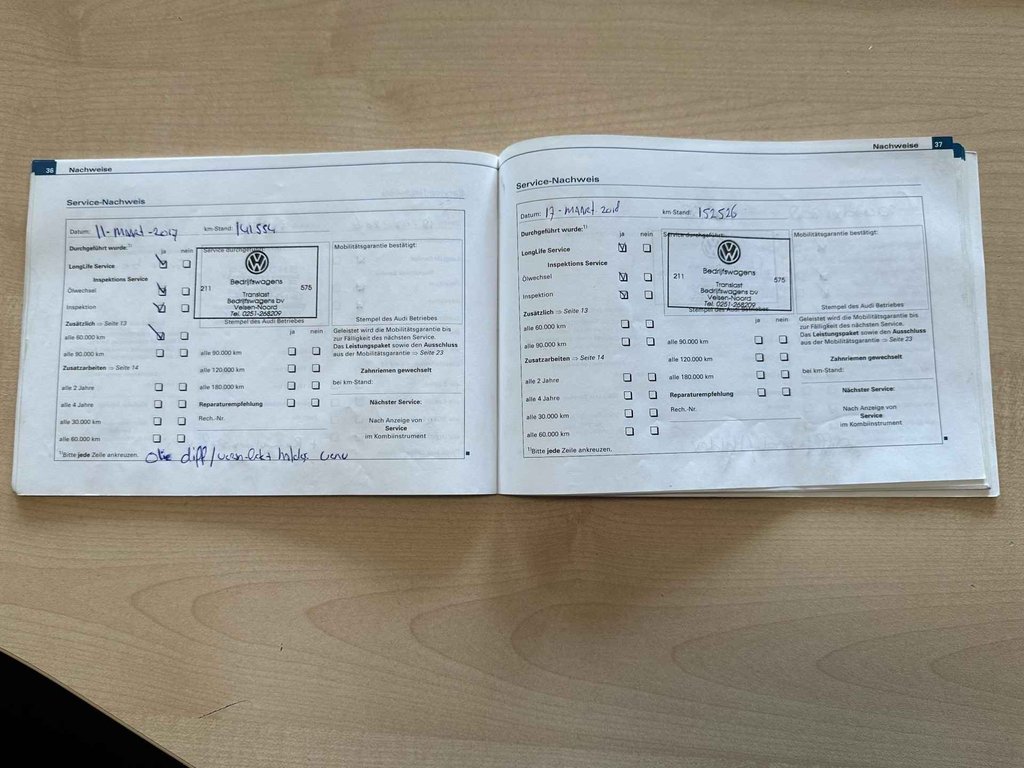 36 Nachweise
Service-Nachweis
Datum: 11-MAART-2017 km-Stand: 141554
Durchgeführt wurde:¹⁾ ja nein
Service durchgeführt:
Mobilitätsgarantie bestätigt:
LongLife Service
Inspektions Service
Ölwechsel
Inspektion
Zusätzlich ⇒ Seite 13
alle 60.000 km
alle 90.000 km
Bedrijfswagens
211 575
Translast
Bedrijfswagens bv
Velsen-Noord
Tel. 0251-268209
Stempel des Audi Betriebes
Stempel des Audi Betriebes
ja nein
alle 90.000 km
alle 120.000 km
alle 180.000 km
Reparaturempfehlung
Rech.-Nr.
Geleistet wird die Mobilitätsgarantie bis
zur Fälligkeit des nächsten Service.
Das Leistungspaket sowie den Ausschluss
aus der Mobilitätsgarantie ⇒ Seite 23
Zahnriemen gewechselt
bei km-Stand:
Nächster Service:
Nach Anzeige von
Service
im Kombiinstrument
Zusatzarbeiten ⇒ Seite 14
alle 2 Jahre
alle 4 Jahre
alle 30.000 km
alle 60.000 km
¹⁾Bitte jede Zeile ankreuzen.
diff/
Nachweise 37
Service-Nachweis
Datum: 17-MAART 2018 km-Stand: 152526
Durchgeführt wurde:¹⁾ ja nein
Service durchgeführt:
Mobilitätsgarantie bestätigt:
LongLife Service
Inspektions Service
Ölwechsel
Inspektion
Zusätzlich ⇒ Seite 13
alle 60.000 km
alle 90.000 km
Bedrijfswagens
211 575
Translast
Bedrijfswagens bv
Velsen-Noord
Tel. 0251-268209
Stempel des Audi Betriebes
Stempel des Audi Betriebes
ja nein
alle 90.000 km
alle 120.000 km
alle 180.000 km
Reparaturempfehlung
Rech.-Nr.
Geleistet wird die Mobilitätsgarantie bis
zur Fälligkeit des nächsten Service.
Das Leistungspaket sowie den Ausschluss
aus der Mobilitätsgarantie ⇒ Seite 23
Zahnriemen gewechselt
bei km-Stand:
Nächster Service:
Nach Anzeige von
Service
im Kombiinstrument
Zusatzarbeiten ⇒ Seite 14
alle 2 Jahre
alle 4 Jahre
alle 30.000 km
alle 60.000 km
¹⁾Bitte jede Zeile ankreuzen.